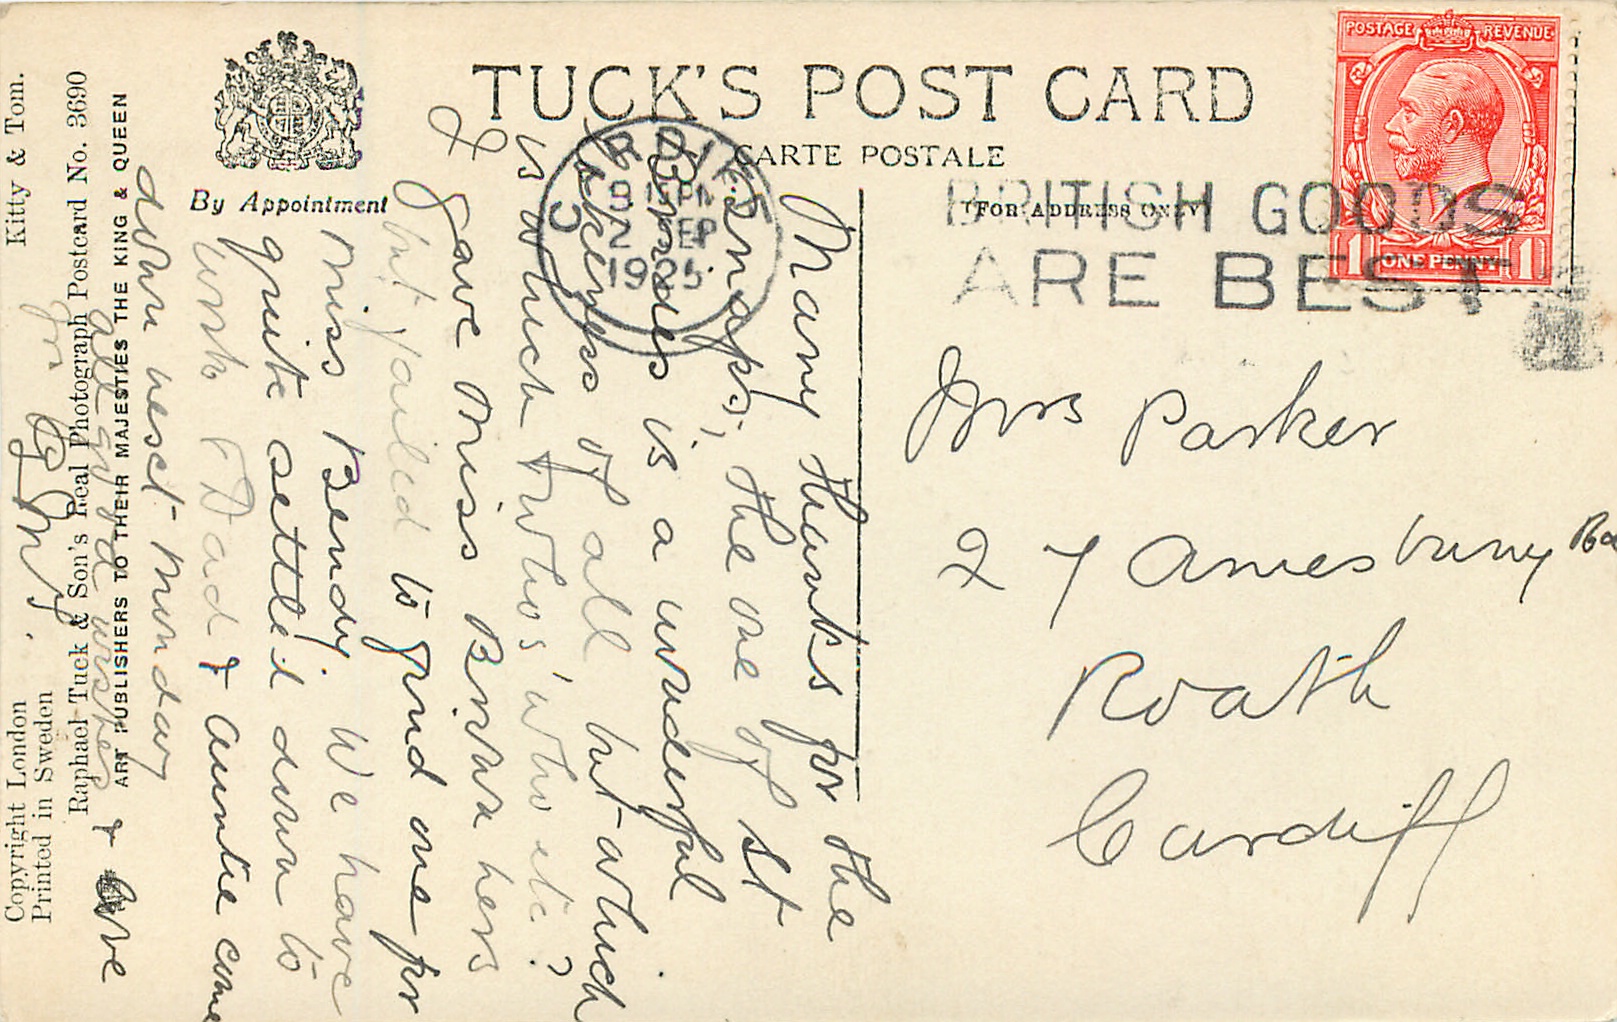 TUCK'S POST CARD
CARTE POSTALE
(FOR ADDRESS ONLY)
By Appointment
POSTAGE REVENUE
1 ONE PENNY 1
CARDIFF
9 15 PM
2 SEP
1925
BRITISH GOODS
ARE BEST
Mrs Parker
27 Amesbury Rd
Roath
Cardiff
Many thanks for the
snaps, the one of St
Brides is a wonderful
likeness of all but which
is which & who's who etc?
I gave Miss Brown hers
but failed to find one for
Miss Bendy. We have
quite settled down to
work. Dad & Auntie come
down next Monday
All good wishes & love
for
Kitty & Tom.
Raphael Tuck & Son's Real Photograph Postcard No. 3690
ART PUBLISHERS TO THEIR MAJESTIES THE KING & QUEEN
Copyright London
Printed in Sweden